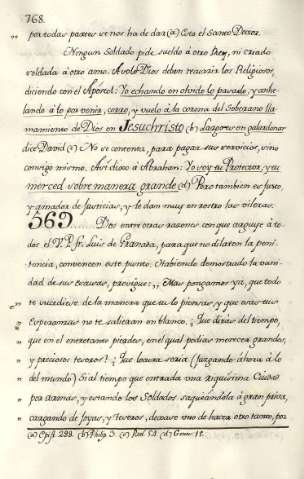 768.
por todas partes se nos ha de dar (a) Esta el Santo Doctor.
Ningun Soldado pide sueldo á otro Rey, ni criado
soldada á otro amo. A solo Dios deben servir los Religiosos,
diciendo con el Apóstol: Yo echando en olvido lo pasado, y anhe-
lando á lo por venir, corro, y vuelo á la corona del Soberano lla-
mamiento de Dios en Jesuchristo (b) La que es en galardonar
dice David (c) No se contenta, para pagar sus servicios, sino
consigo mismo. Así dixo á Abrahan: Yo soy tu Protector, y tu
merced sobre manera grande (d) Pero tambien es justo,
y amador de justicias, y le dan muy en rostro las vilezas.
569 Dos entre otras razones con que arguye á to-
dos el V. P. fr. Luis de Granada, para que no dilaten la peni-
tencia, convencen este punto. Habiendo demostrado la vani-
dad de sus excusas, prosigue: ,, Mas pongamos ya, que todo
te sucediese de la manera que tu lo piensas, y que estas tus
esperanzas no te salieran en blanco. ¿Que dirás del tiempo,
que en el entretanto pierdes, en el qual podias merecer grandes,
y preciosos tesoros? ¿Que locura sería (juzgando ahora á lo
del mundo) Si al tiempo que entrada una riquisima Ciudad
por armas, y estando los Soldados saqueandola á gran prisa,
cargando de joyas, y tesoros, dexase uno de hacer otro tanto, por
(a) Epist. 288. (b) Philip. 3. (c) Psal. 51. (d) Genes. 15.